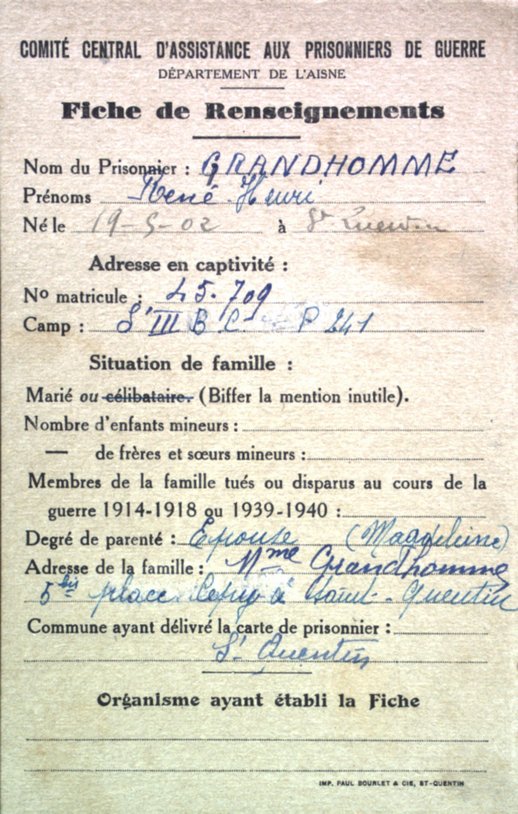 COMITÉ CENTRAL D'ASSISTANCE AUX PRISONNIERS DE GUERRE
DÉPARTEMENT DE L'AISNE
Fiche de Renseignements
Nom du Prisonnier : GRANDHOMME
Prénoms René Henri
Né le 19-5-02 à St Quentin
Adresse en captivité :
No matricule : 45.709
Camp : St III B C P 241
Situation de famille :
Marié ou célibataire. (Biffer la mention inutile).
Nombre d'enfants mineurs :
— de frères et sœurs mineurs :
Membres de la famille tués ou disparus au cours de la
guerre 1914-1918 ou 1939-1940 :
Degré de parenté : Epouse (Magdeleine)
Adresse de la famille : Mme Grandhomme
5 bis place à Saint-Quentin
Commune ayant délivré la carte de prisonnier :
St Quentin
Organisme ayant établi la Fiche
IMP. PAUL BOURLET & CIE, ST-QUENTIN